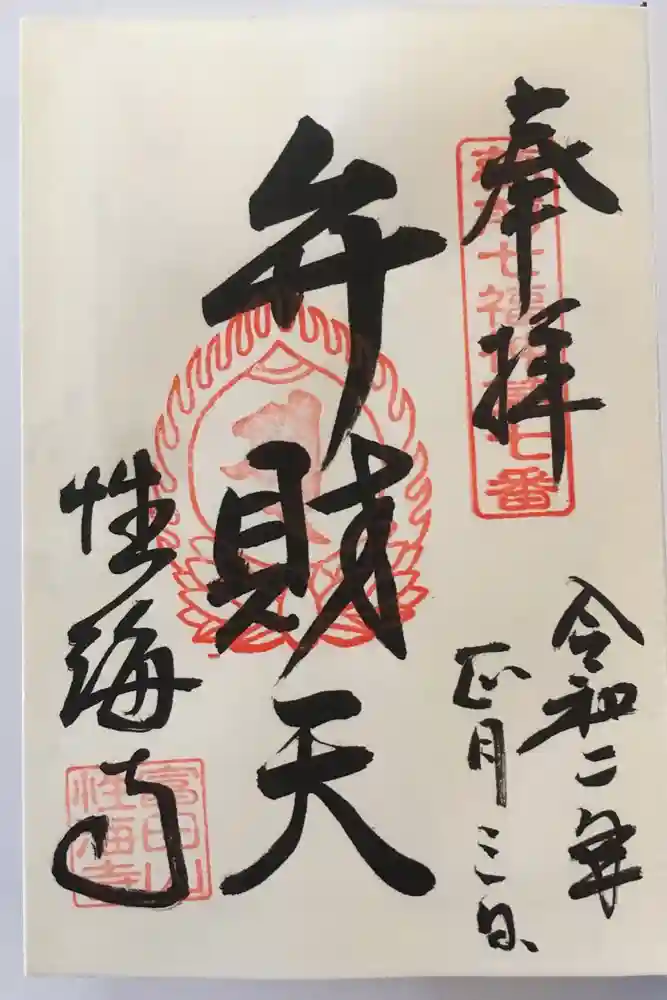 奉拝
七福神第七番
令和二年
正月三日
弁財天
性海寺
富田山
性海寺